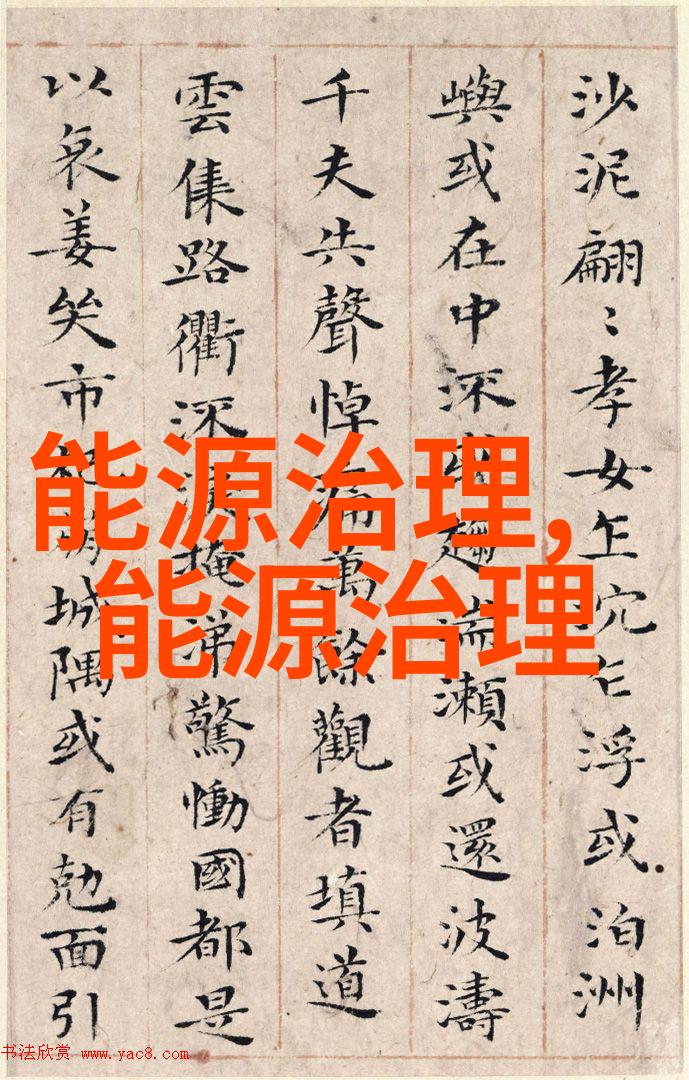 沙泥翩〻孝女乍沉乍浮或泊洲
嶼或在中深或趨湍瀨或還波濤
千夫共聲悼痛萬餘觀者填道
雲集路衢深淚掩涕驚慟國都是
以哀姜哭市杞崩城隅或有勊面引
能源治理,
能源治理
书法欣赏 www.yac8.com